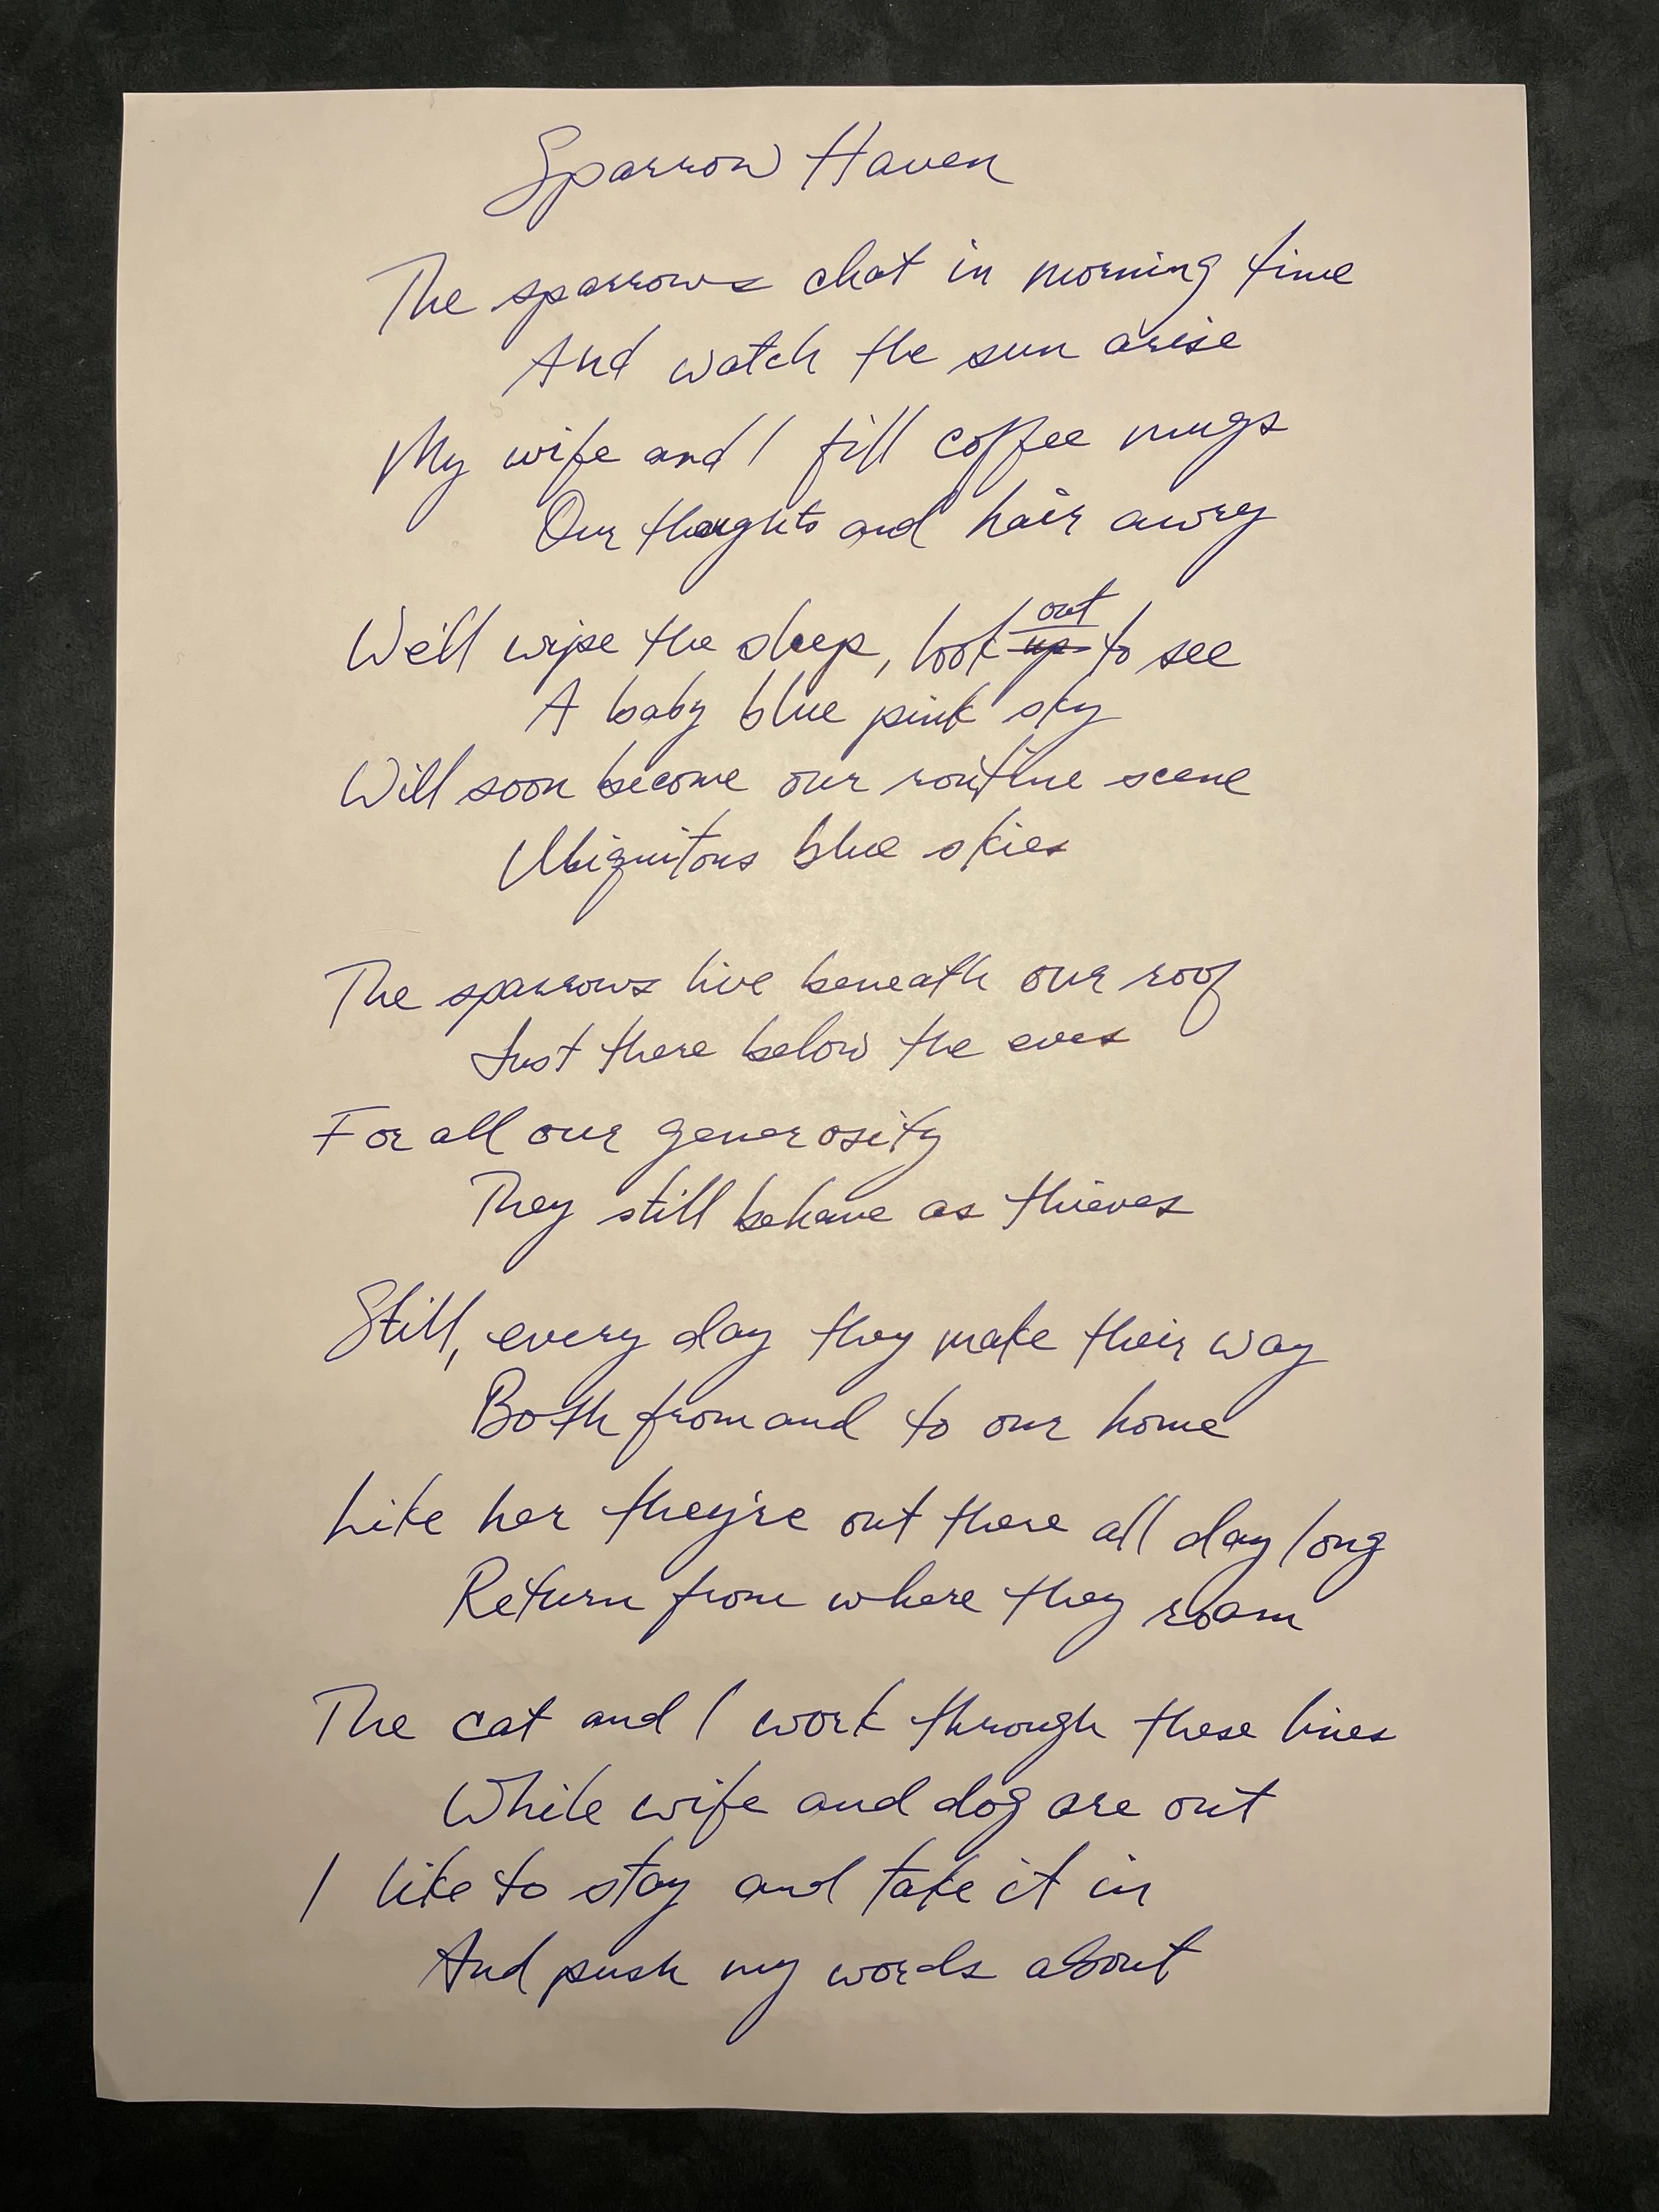 Sparrow Haven
The sparrows chat in morning time
And watch the sun arise
My wife and I fill coffee mugs
Our thoughts and hair awry
We'll wipe the sleep, look out up to see
A baby blue pink sky
Will soon become our routine scene
Ubiquitous blue skies
The sparrows live beneath our roof
Just there below the eves
For all our generosity
They still behave as thieves
Still, every day they make their way
Both from and to our home
Like her they're out there all day long
Return from where they roam
The cat and I work through these lines
While wife and dog are out
I like to stay and take it in
And push my words about